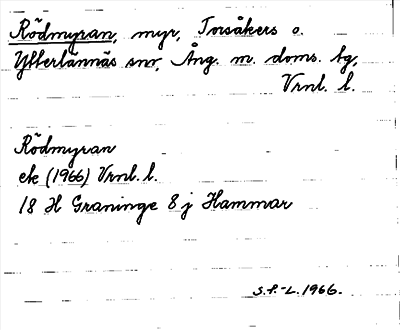 Rödmyran, myr, Torsåkers o.
Ytterlännäs snr, Ång. m. doms. tg,
Vrnl. l.
Rödmyran
ek (1966) Vrnl. l.
18 H Graninge 8 j Hammar
S.F.-L. 1966.